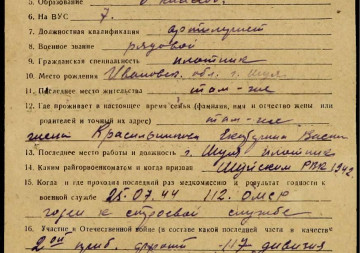 5. Образование
6. На ВУС 7.
7. Должностная квалификация артиллерист
8. Военное звание рядовой
9. Гражданская специальность плотник
10. Место рождения Ивановск. обл. г. Шуя
11. Последнее место жительства там-же
12. Где проживает в настоящее время семья (фамилия, имя и отчество жены или
родителей и точный их адрес) там-же
жена Красильникова
13. Последнее место работы и должность г. Шуя плотник
14. Каким райгорвоенкоматом и когда призван Шуйским РВК 1942.
15. Когда и где проходил последний раз медкомиссию и результат годности к
военной службе 25.07.44 112. ОМСР
годен к строевой службе
16. Участие в Отечественной войне (в составе какой последней части в качестве
2ой приб. фронт 117 дивизия